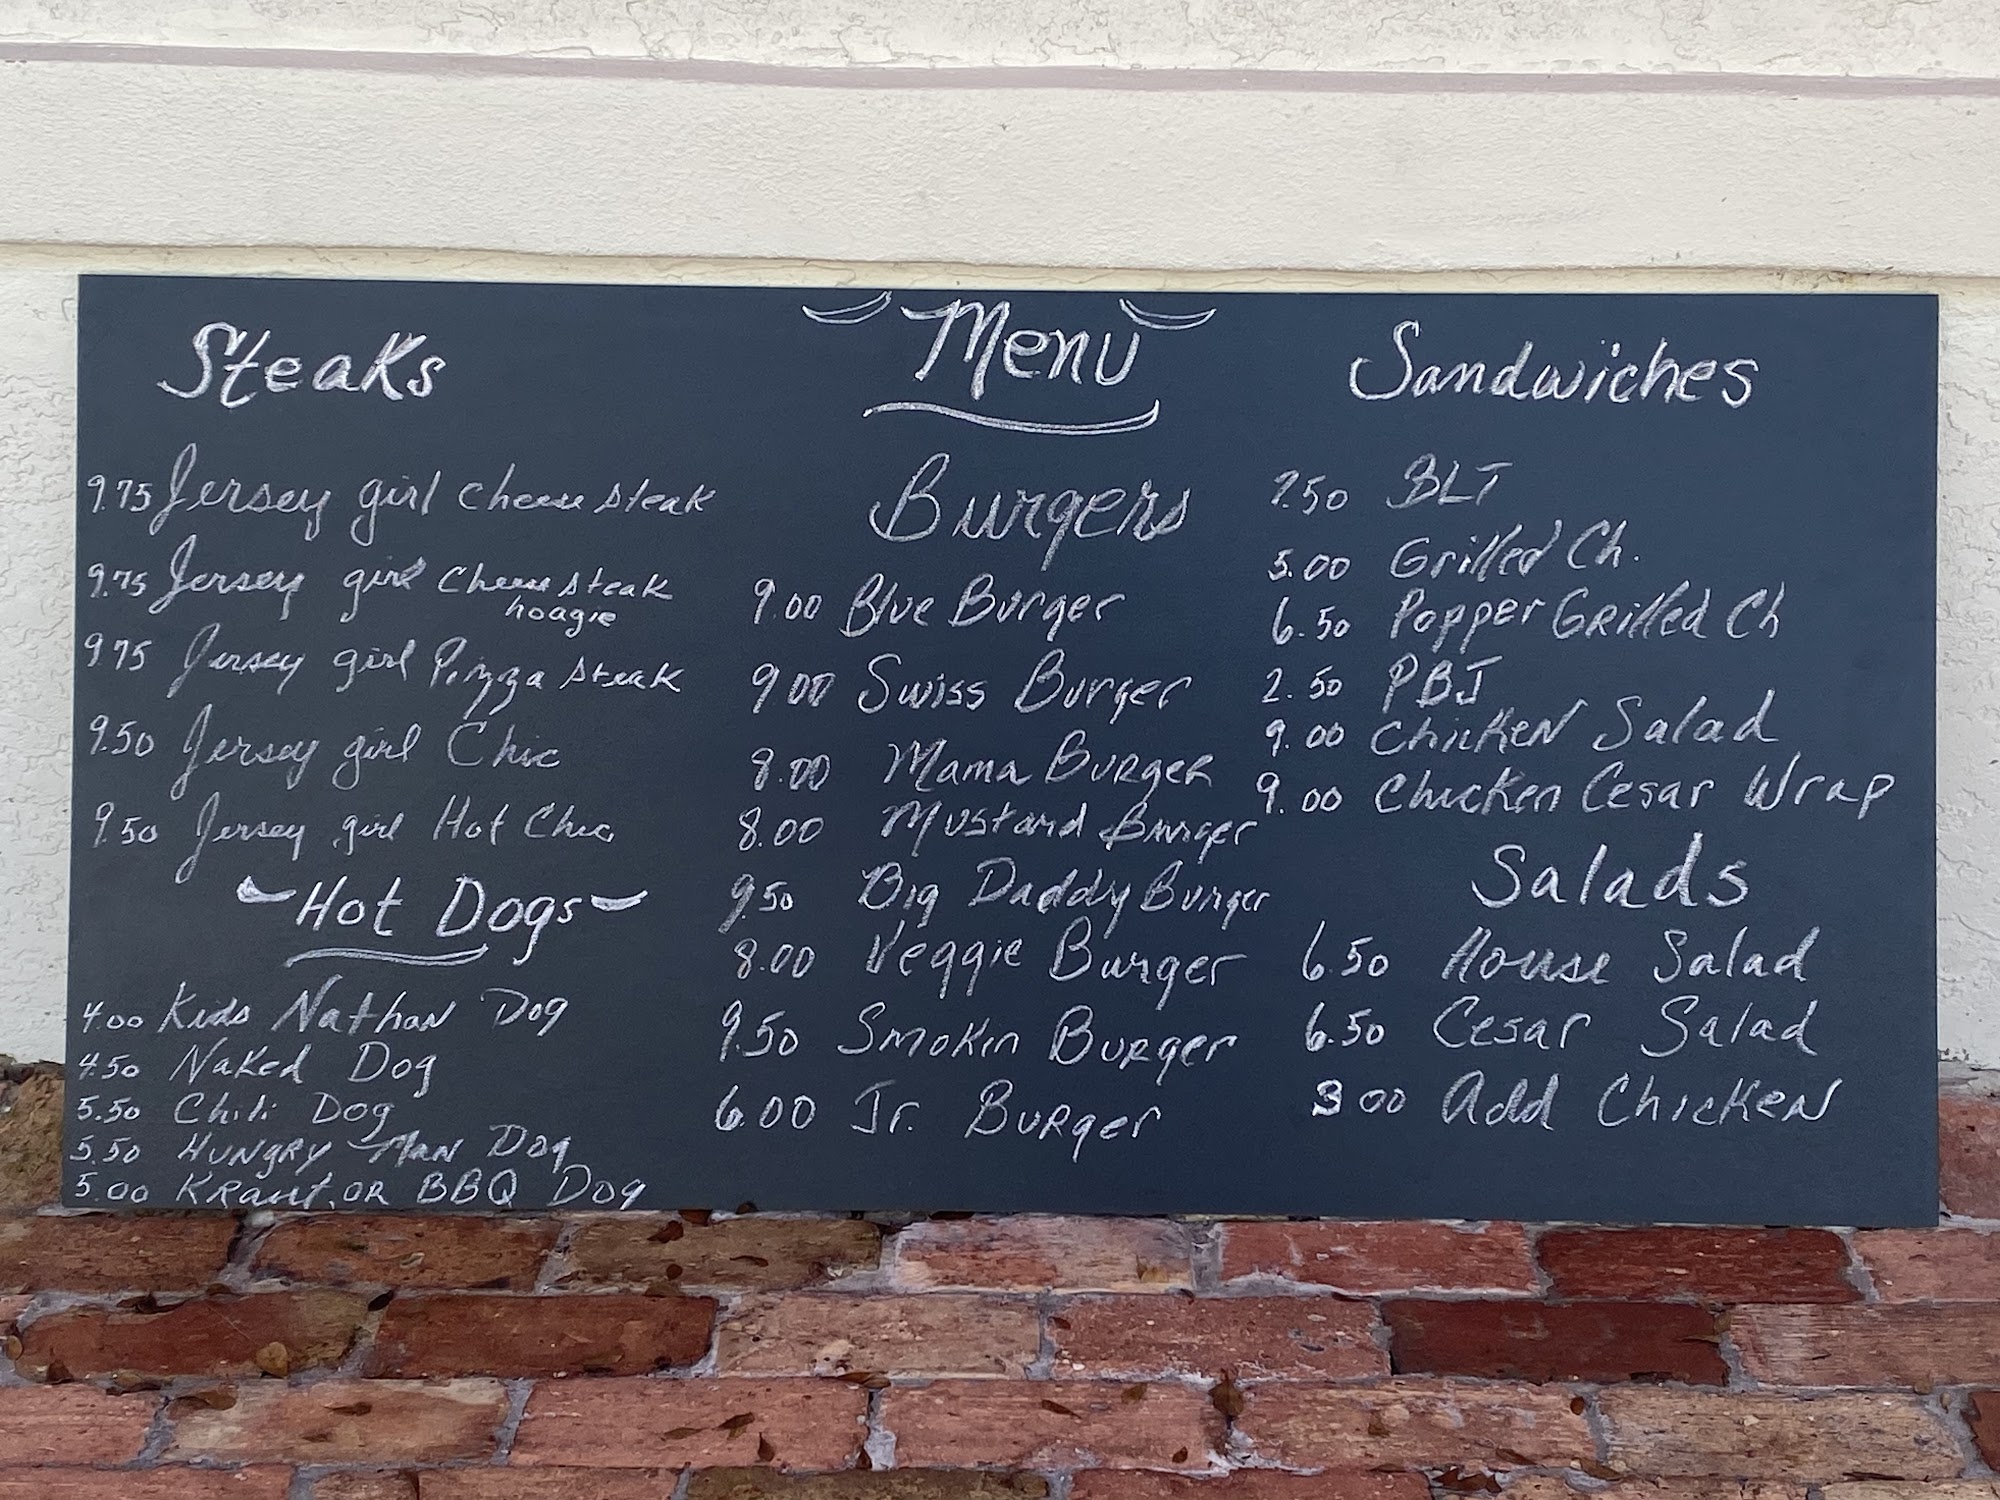 Menu
Steaks
9.75 Jersey girl Cheese steak
9.75 Jersey girl Cheese steak
hoagie
9.75 Jersey girl Pizza steak
9.50 Jersey girl Chic
9.50 Jersey girl Hot Chic
Hot Dogs
4.00 Kids Nathan Dog
4.50 Naked Dog
5.50 Chili Dog
5.50 Hungry Man Dog
5.00 Kraut, or BBQ Dog
Burgers
9.00 Blue Burger
9.00 Swiss Burger
8.00 Mama Burger
8.00 Mustard Burger
9.50 Big Daddy Burger
8.00 Veggie Burger
9.50 Smokin Burger
6.00 Jr. Burger
Sandwiches
7.50 BLT
5.00 Grilled Ch.
6.50 Popper Grilled Ch
2.50 PBJ
9.00 Chicken Salad
9.00 Chicken Cesar Wrap
Salads
6.50 House Salad
6.50 Cesar Salad
3.00 Add Chicken